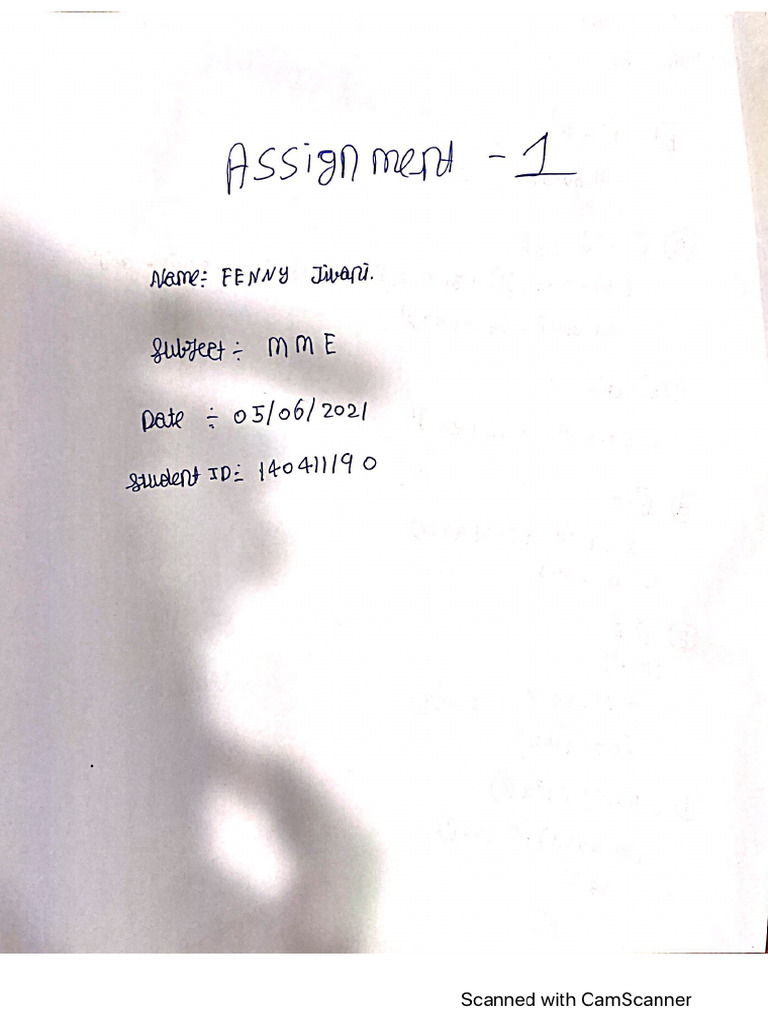 Assignment - 1
Name: FENNY Jivani.
Subject :- MME
Date :- 05/06/2021
Student ID:- 140411190
Scanned with CamScanner